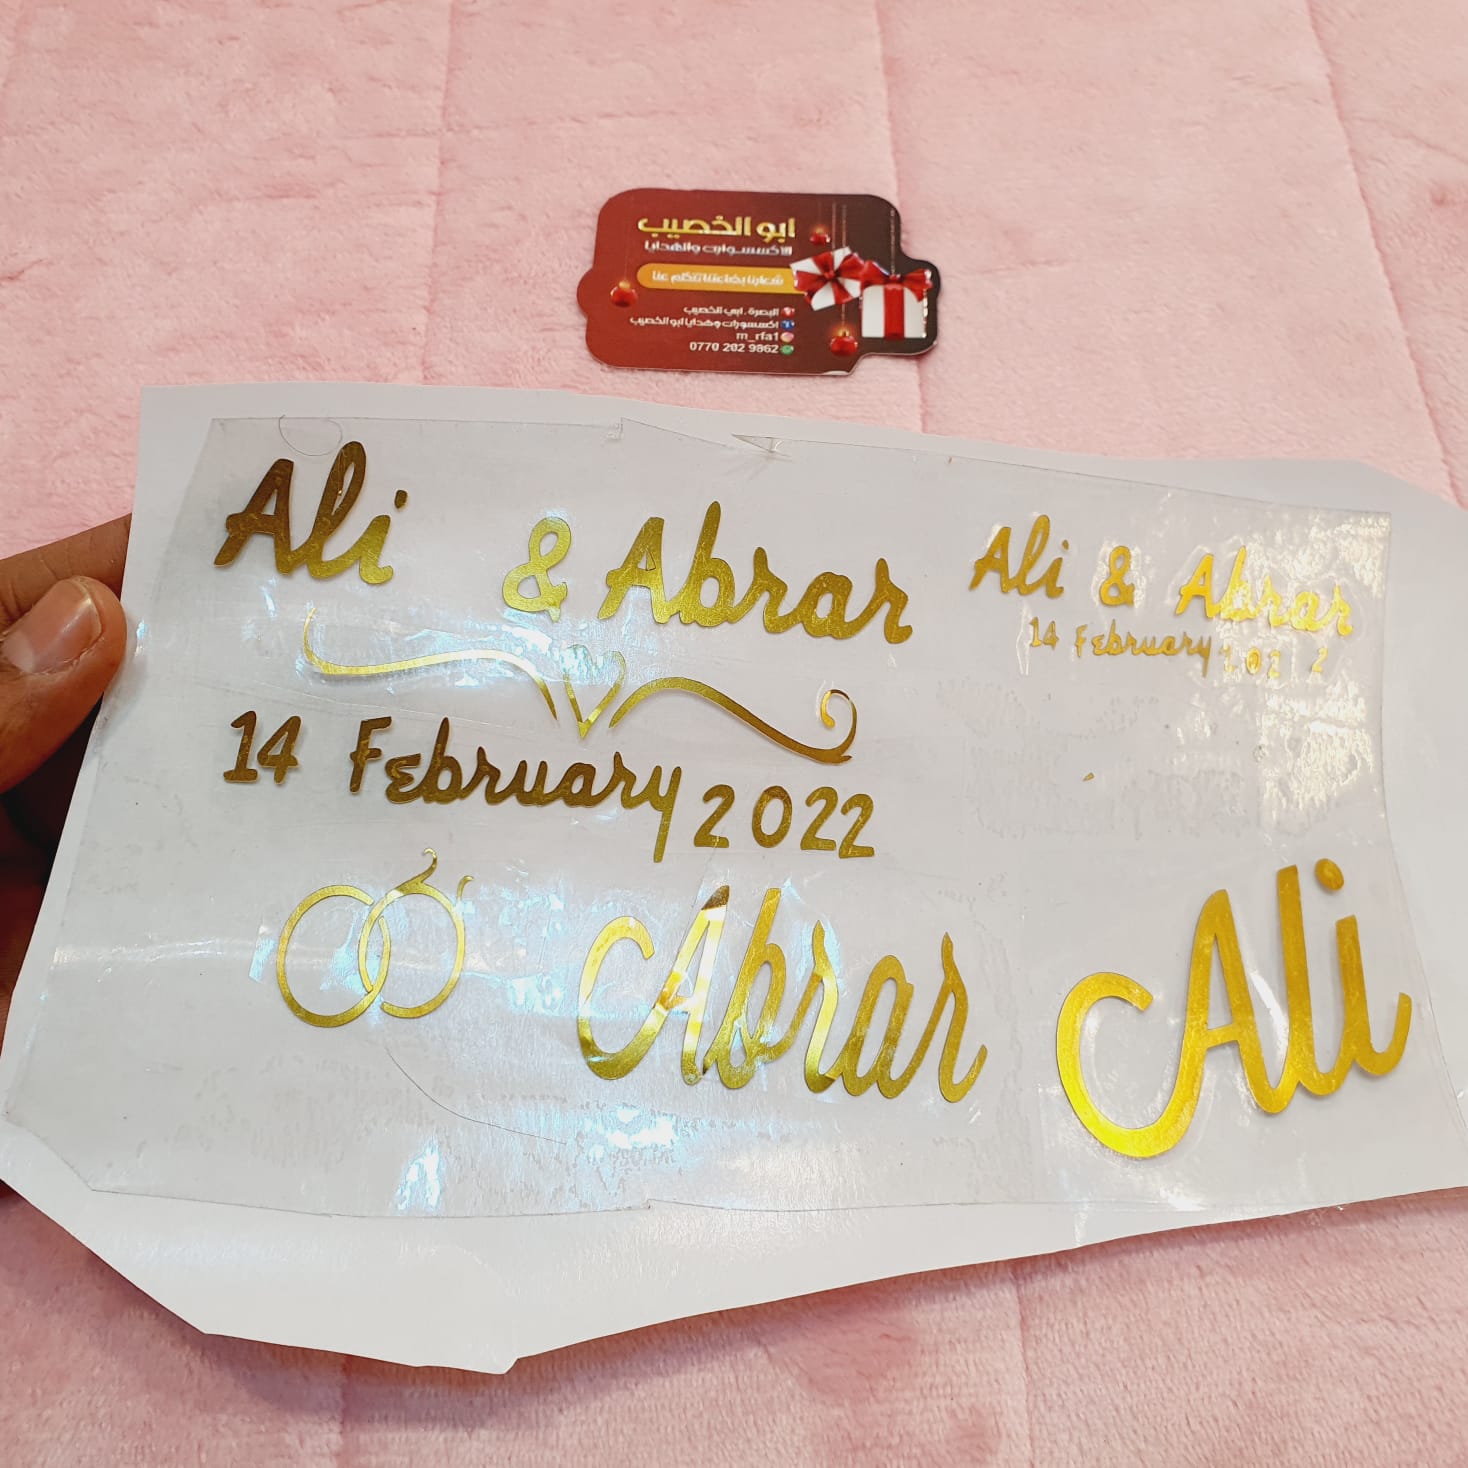 ابو الخصيب
للاكسسوارت والهدايا
شعارنا بضاعتنا تتكلم عنا
البصرة . ابي الخصيب
اكسسورات وهدايا ابو الخصيب
m_rfa1
0770 202 9862
Ali & Abrar
14 February 2022
Ali & Abrar
14 February 2022
Abrar
Ali